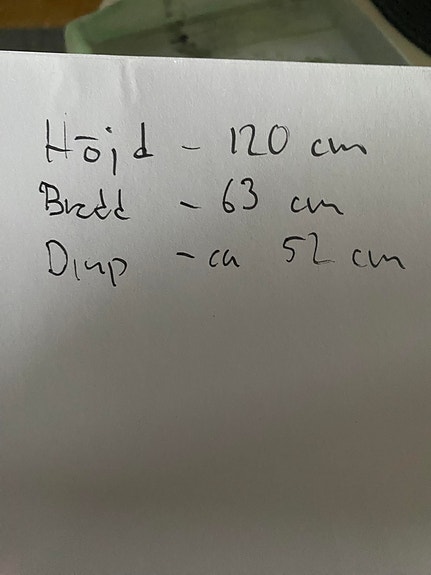 Höjd - 120 cm
Bredd - 63 cm
Djup - ca 52 cm